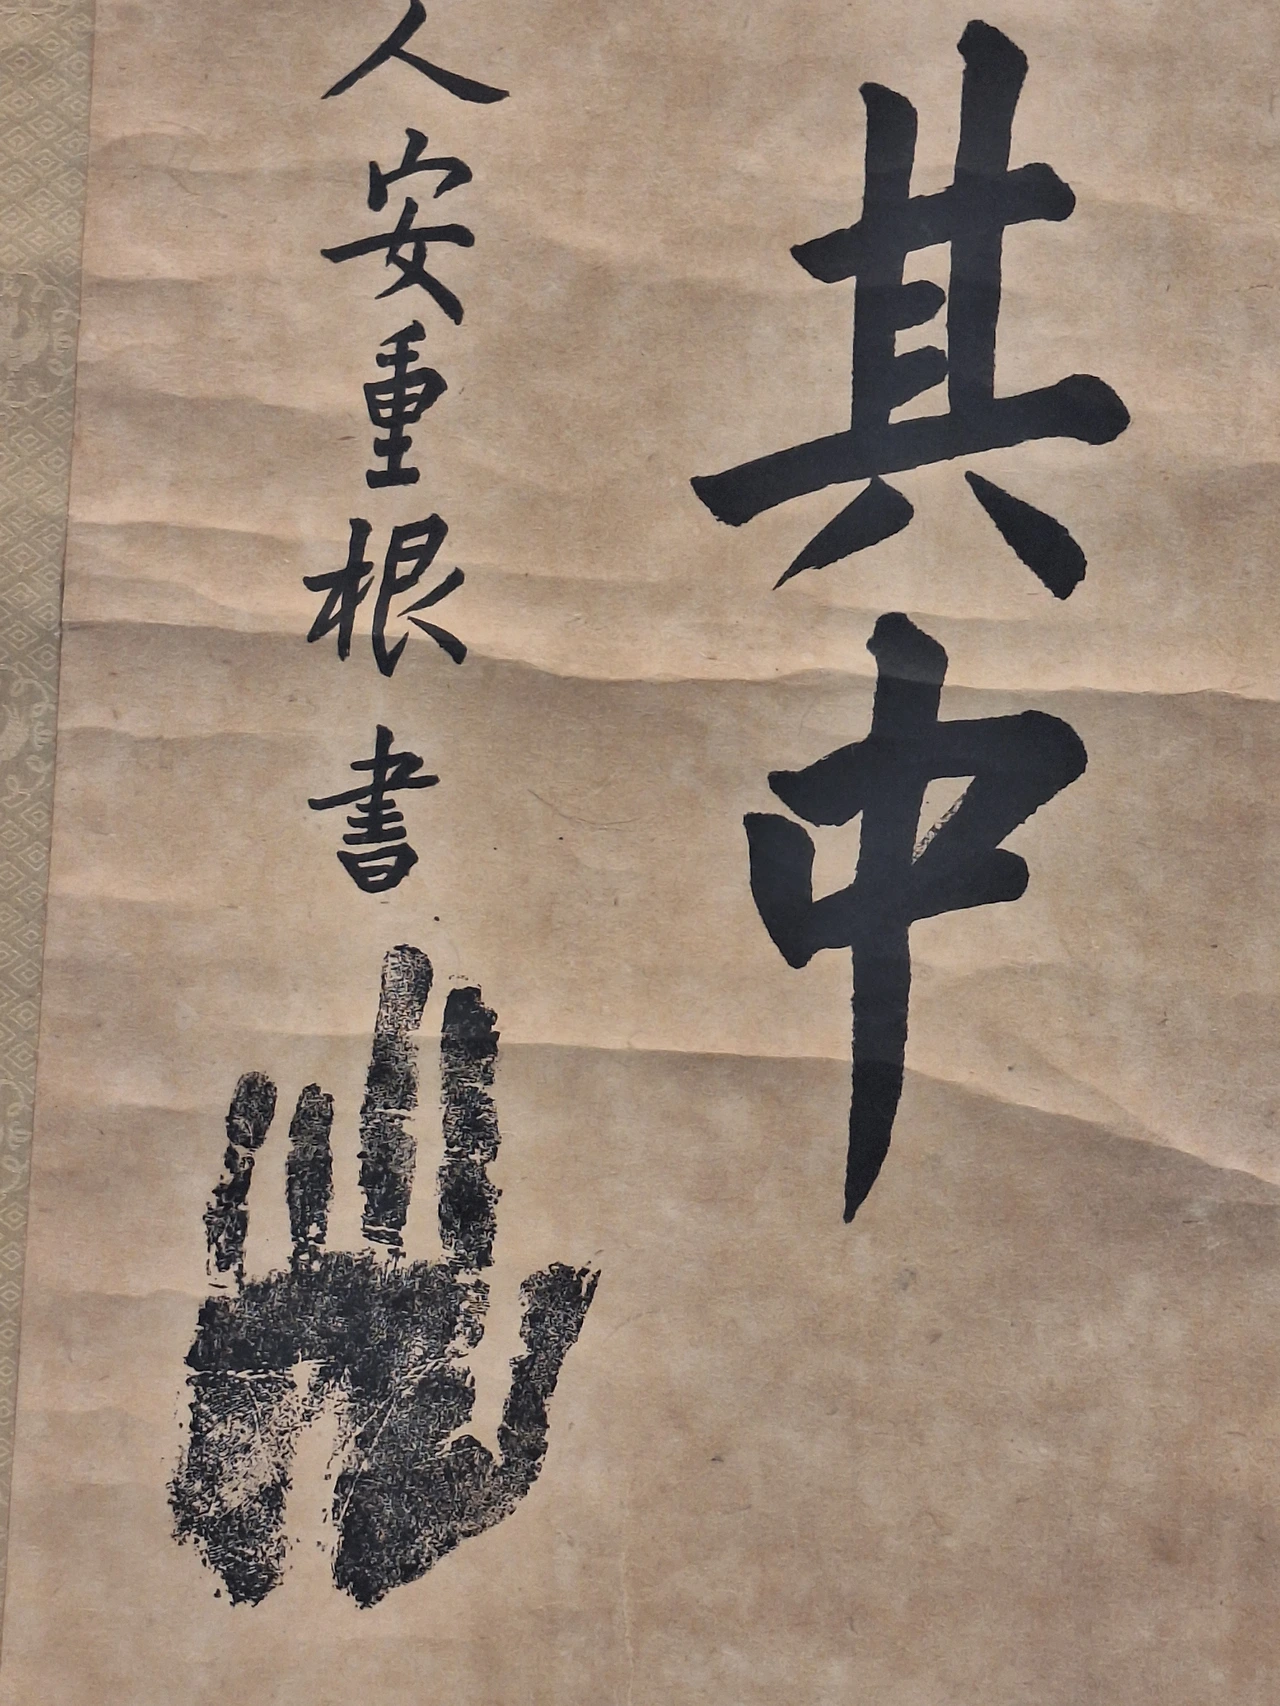 其中
人安重根書